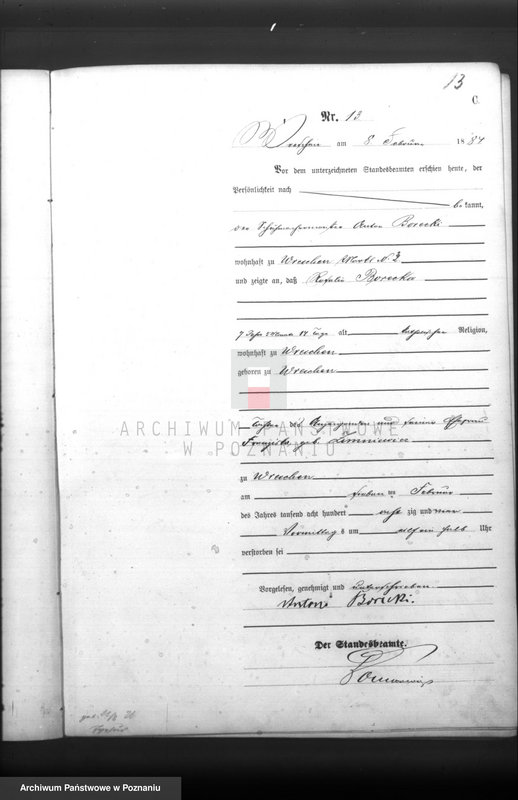 13
C.
Nr. 13
Wreschen am 8 Februar 1884
Vor dem unterzeichneten Standesbeamten erschien heute, der
Persönlichkeit nach
bekannt,
der Schuhmachermeister Anton Borecki
wohnhaft zu Wreschen Markt N
und zeigte an, daß Rosalie Borecka
7 Jahr 5 Monat Tage alt katholischer Religion,
wohnhaft zu Wreschen
geboren zu Wreschen
Tochter des Angezeigenden und seiner Ehefrau
Franziska geb.
ARCHIWUM PAŃSTWOWE
W POZNANIU
zu Wreschen
am sieben ten Februar
des Jahres tausend acht hundert acht zig und vier
Vormittags um elf ein halb Uhr
verstorben sei
Vorgelesen, genehmigt und unterschrieben
Anton Borecki.
Der Standesbeamte.
Archiwum Państwowe w Poznaniu